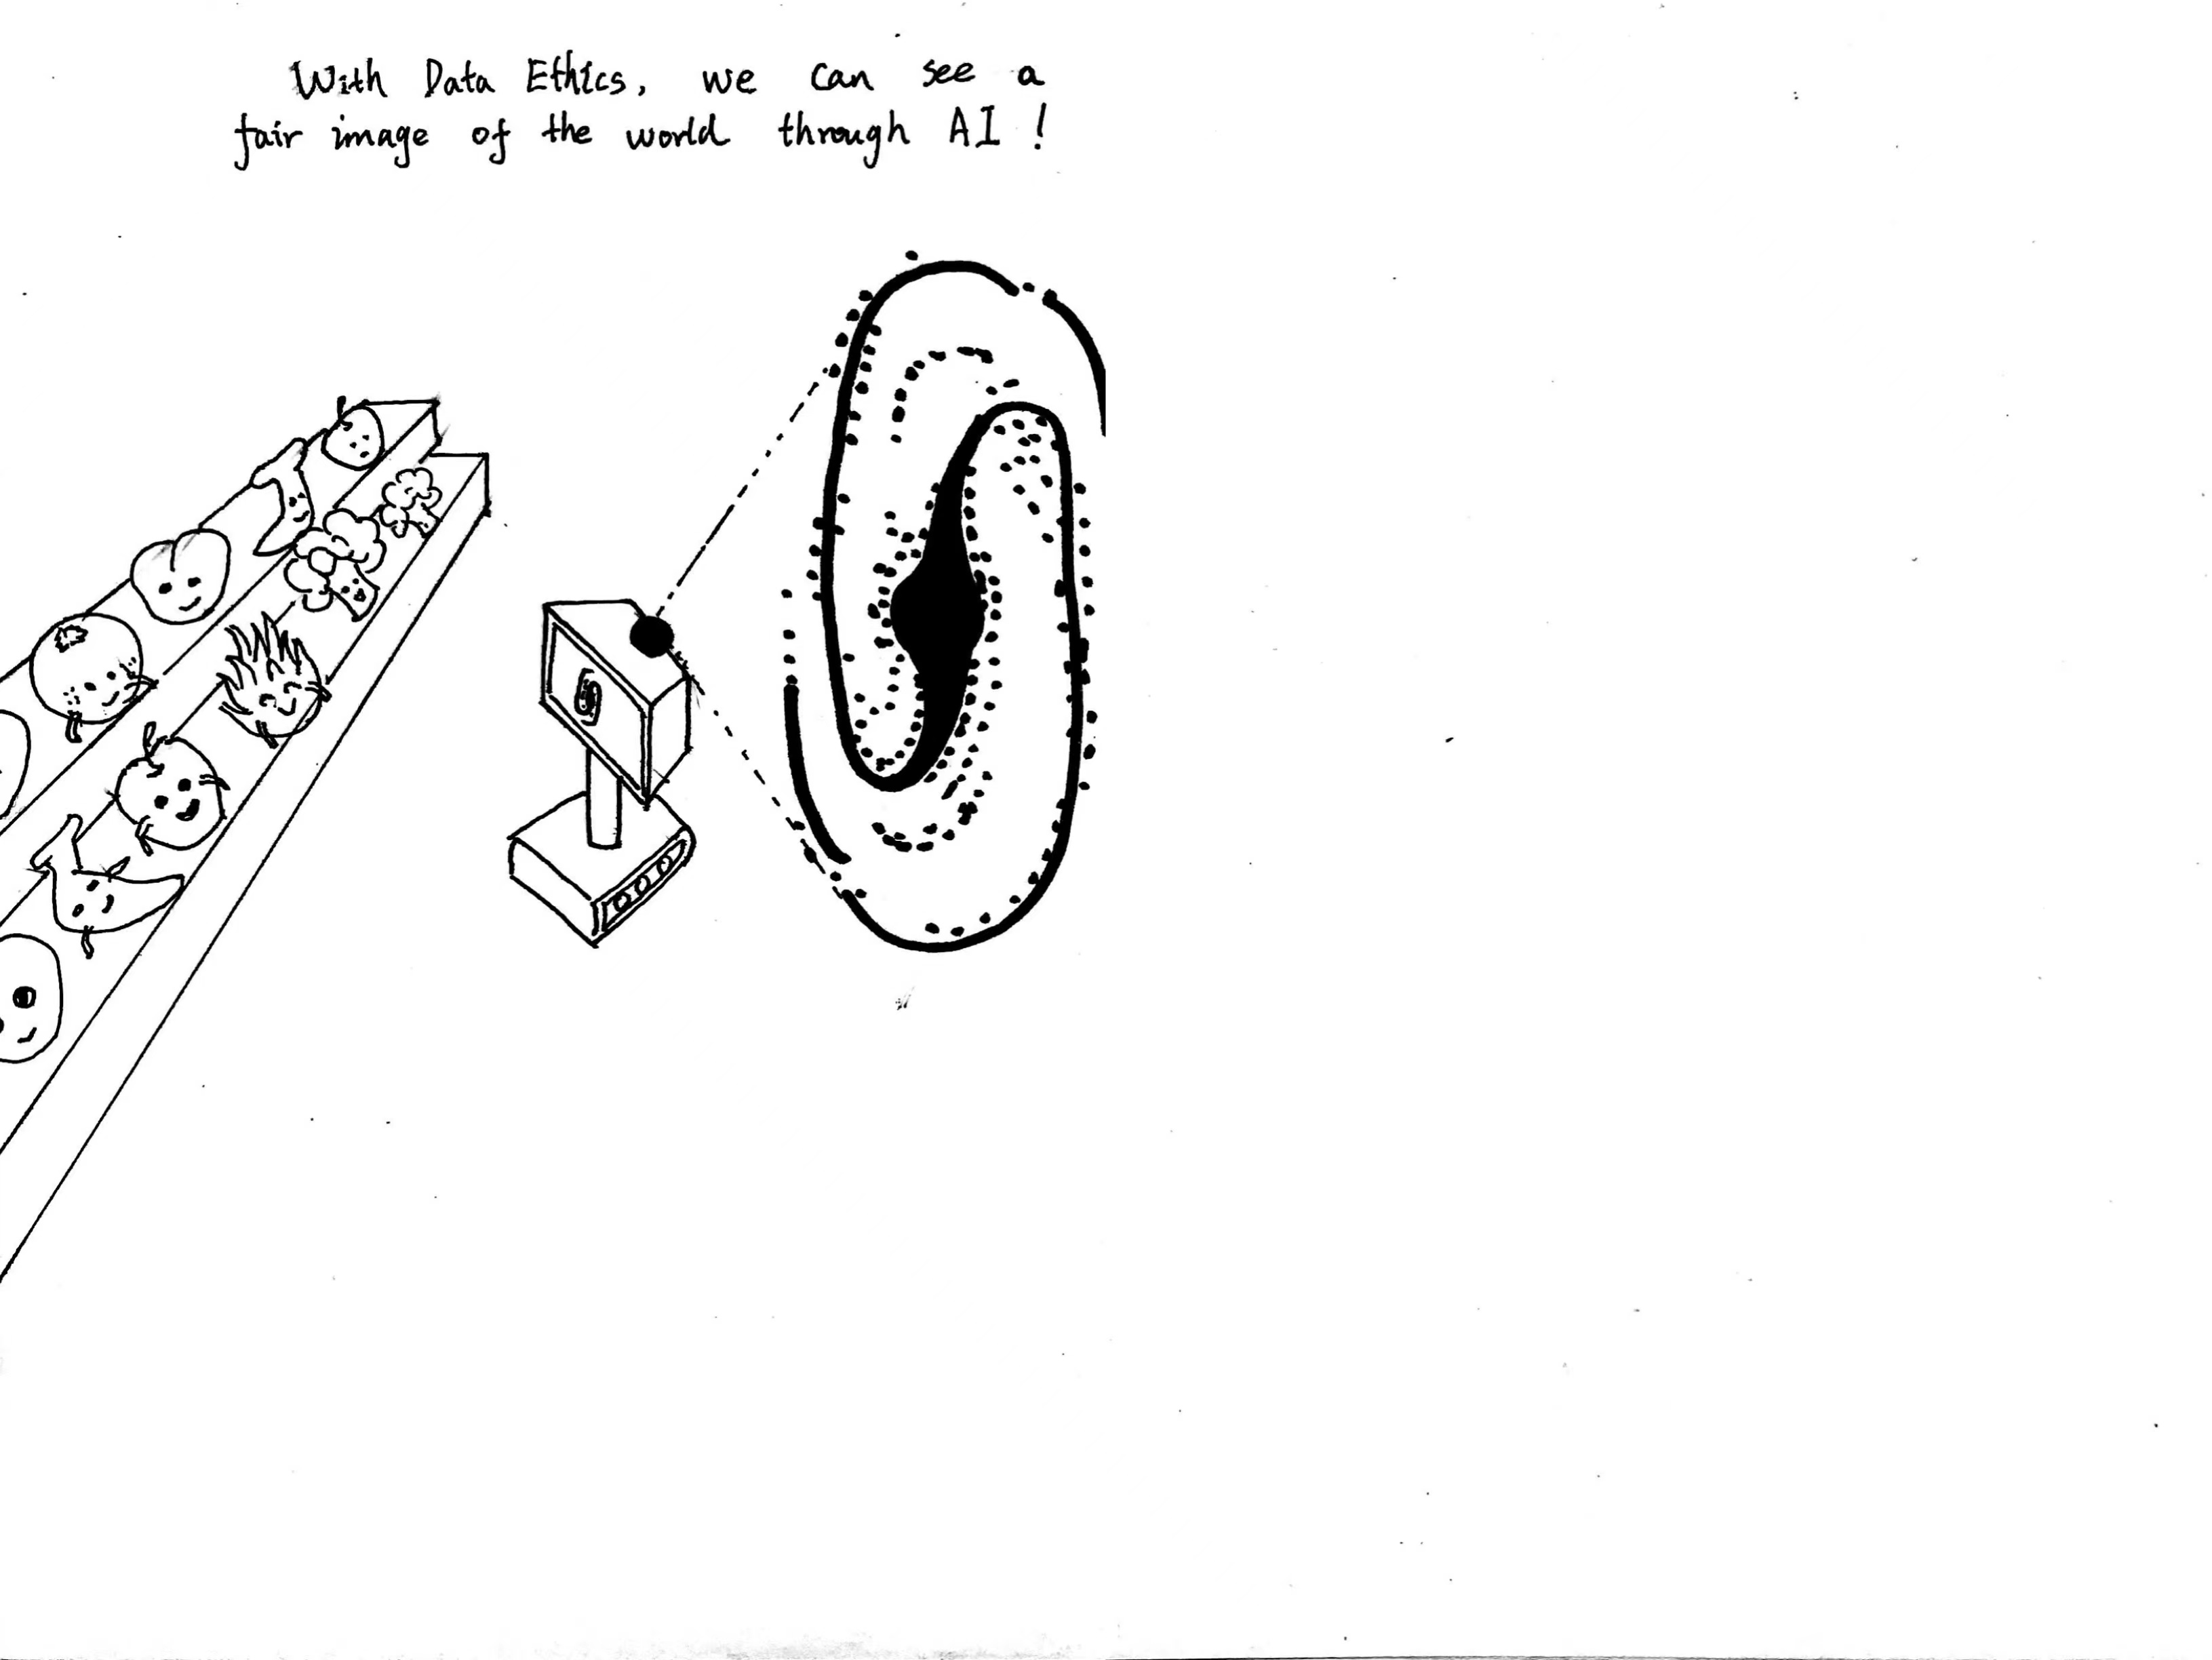 With Data Ethics, we can see a
fair image of the world through AI !